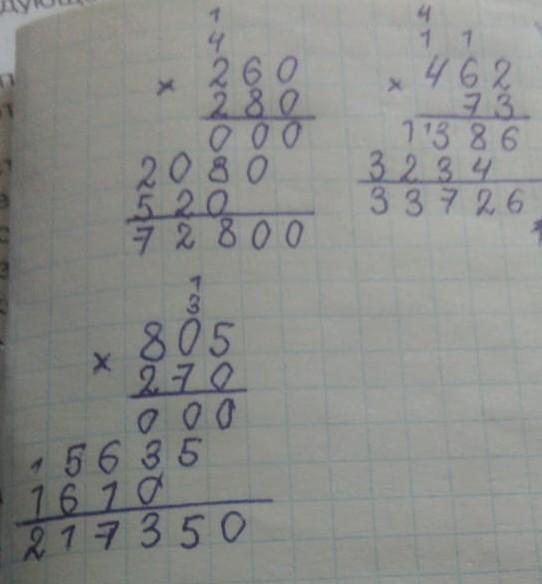 дующ
1
4
× 260
280
000
2080
520
72800
4
1 1
× 462
73
1386
3234
33726
1
3
× 805
270
000
1
5635
1610
217350